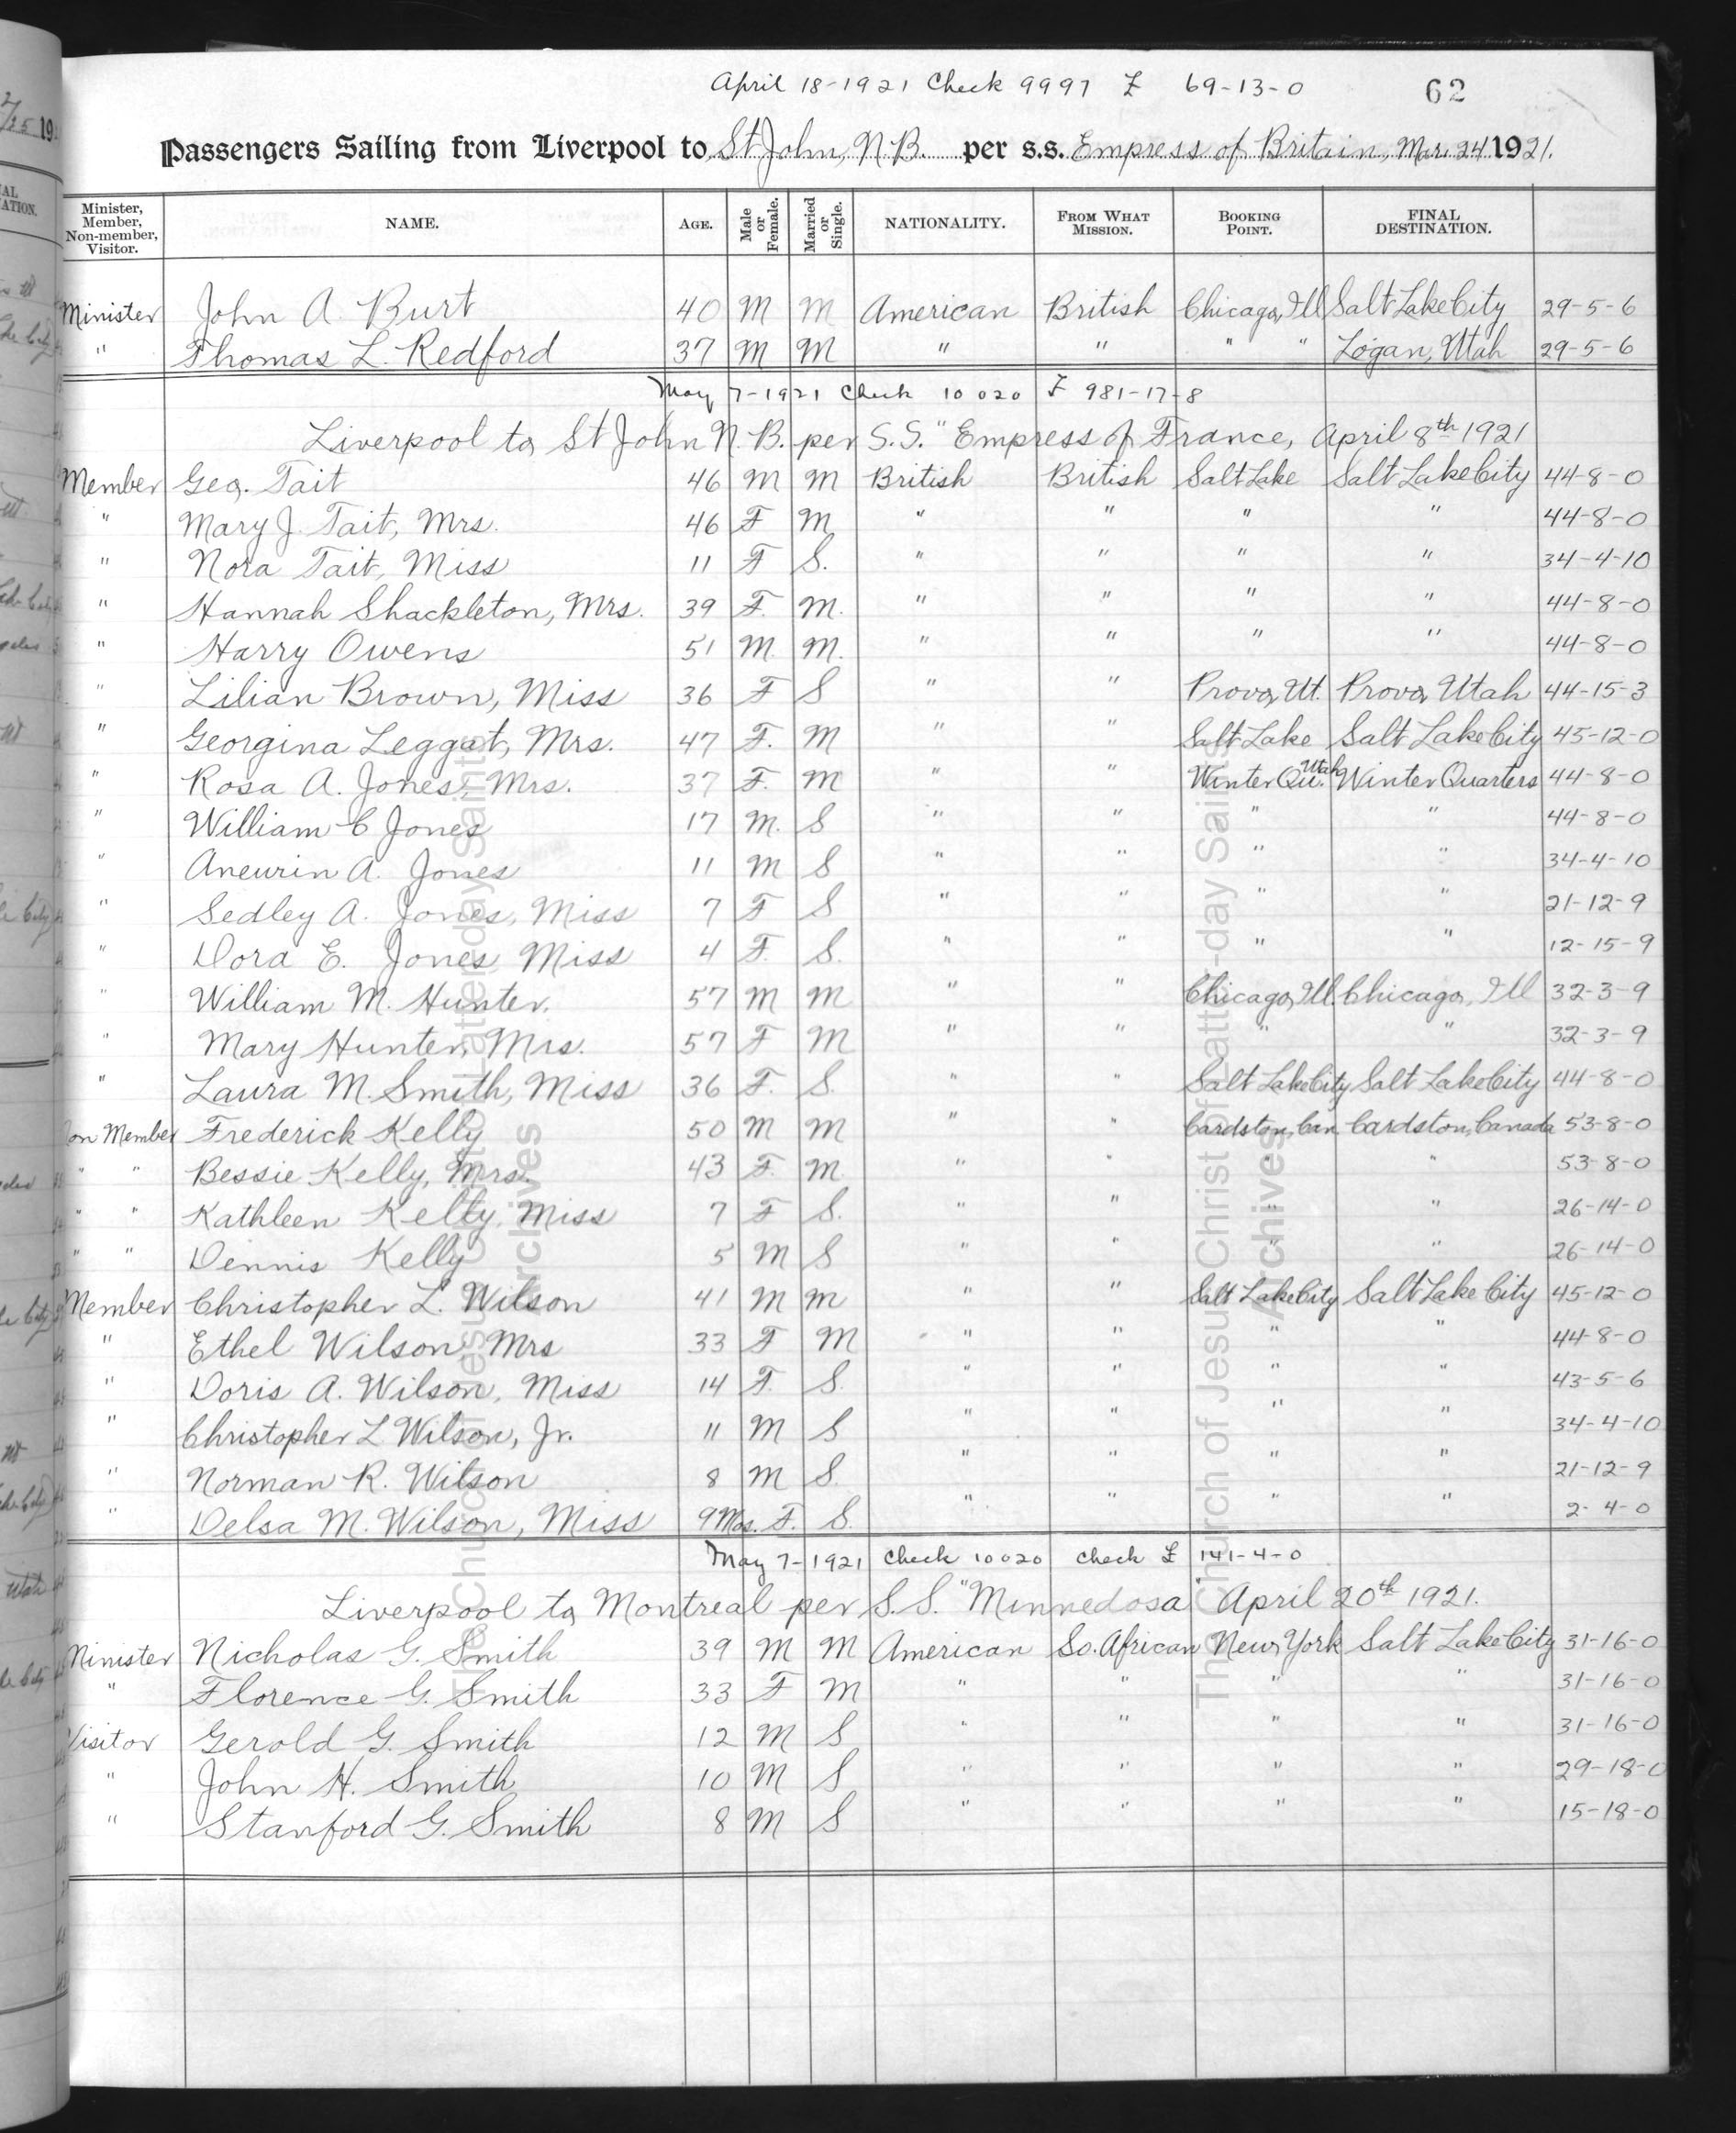 April 18-1921 Check 9997 £ 69-13-0 62
Passengers Sailing from Liverpool to St John, N.B. per s.s. Empress of Britain, Mar. 24 1921.
Minister, Member, Non-member, Visitor. NAME. AGE. Male or Female. Married or Single. NATIONALITY. FROM WHAT MISSION. BOOKING POINT. FINAL DESTINATION.
Minister John A. Burt 40 M M American British Chicago, Ill Salt Lake City 29-5-6
" Thomas L. Redford 37 M M " " " " Logan, Utah 29-5-6
May 7-1921 Check 10020 £ 981-17-8
Liverpool to St John N.B. per S.S. "Empress of France, April 8th 1921
Member Geo. Tait 46 M M British British Salt Lake Salt Lake City 44-8-0
" Mary J. Tait, Mrs. 46 F M " " " " 44-8-0
" Nora Tait, Miss 11 F S. " " " " 34-4-10
" Hannah Shackleton, Mrs. 39 F. M. " " " " 44-8-0
" Harry Owens 51 M. M. " " " " 44-8-0
" Lilian Brown, Miss 36 F S " " Provo, Ut. Provo, Utah 44-15-3
" Georgina Leggat, Mrs. 47 F. M " " Salt Lake Salt Lake City 45-12-0
" Rosa A. Jones, Mrs. 37 F. M " " Winter Qu. Utah Winter Quarters 44-8-0
" William C Jones 17 M. S " " " " 44-8-0
" Aneurin A. Jones 11 M S " " " " 34-4-10
" Sedley A. Jones, Miss 7 F S " " " " 21-12-9
" Dora E. Jones, Miss 4 F. S. " " " " 12-15-9
" William M. Hunter. 57 M M " " Chicago, Ill. Chicago, Ill 32-3-9
" Mary Hunter, Mrs. 57 F M " " " " 32-3-9
" Laura M. Smith, Miss 36 F. S. " " Salt Lake City Salt Lake City 44-8-0
on Member Frederick Kelly 50 M M " " Cardston, Can. Cardston, Canada 53-8-0
" " Bessie Kelly, Mrs. 43 F. M " " " " 53-8-0
" " Kathleen Kelly, Miss 7 F S. " " " " 26-14-0
" " Dennis Kelly 5 M S " " " " 26-14-0
Member Christopher L. Wilson 41 M M " " Salt Lake City Salt Lake City 45-12-0
" Ethel Wilson, Mrs 33 F M " " " " 44-8-0
" Doris A. Wilson, Miss 14 F. S. " " " " 43-5-6
" Christopher L Wilson, Jr. 11 M S " " " " 34-4-10
" Norman R. Wilson 8 M S. " " " " 21-12-9
" Delsa M. Wilson, Miss 9 Mos. F. S. " " " " 2-4-0
May 7-1921 Check 10020 Check £ 141-4-0
Liverpool to Montreal per S.S. "Minnedosa" April 20th 1921.
Minister Nicholas G. Smith 39 M M American So. African New York Salt Lake City 31-16-0
" Florence G. Smith 33 F M " " " " 31-16-0
Visitor Gerold G. Smith 12 M S " " " " 31-16-0
" John H. Smith 10 M S " " " " 29-18-0
" Stanford G. Smith 8 M S " " " " 15-18-0
The Church of Jesus Christ of Latter-day Saints
Archives
The Church of Jesus Christ of Latter-day Saints
Archives